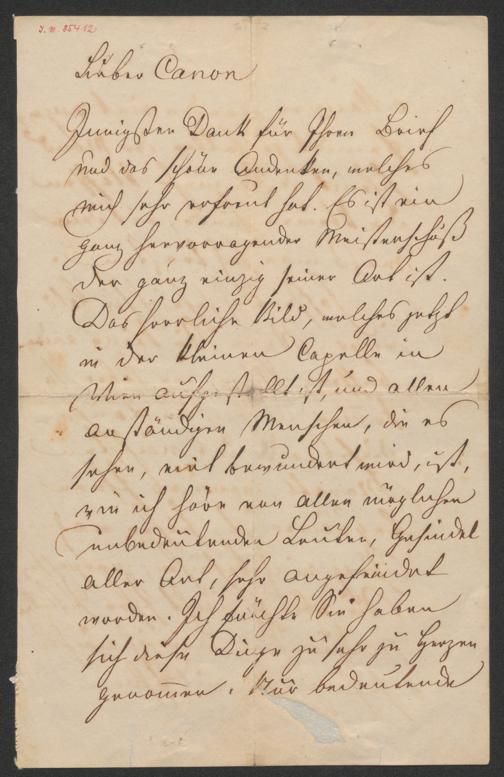 J. N. 85412
Lieber Canon
Innigsten Dank für Ihren Brief
und das schöne Andenken, welches
mich sehr erfreut hat. Es ist ein
ganz hervorragender Meisterschuß
der ganz einzig seiner Art ist.
Das herrliche Bild, welches jetzt
in der kleinen Capelle in
Wien aufgestellt ist, und allen
anständigen Menschen, die es
sehen, viel bewundert wird, ist,
wie ich höre von allen möglichen
unbedeutenden Leuten, Gesindel
aller Art, sehr angefeindet
worden. Ich fürchte Sie haben
sich diese Dinge zu sehr zu Herzen
genommen. Nur bedeutende